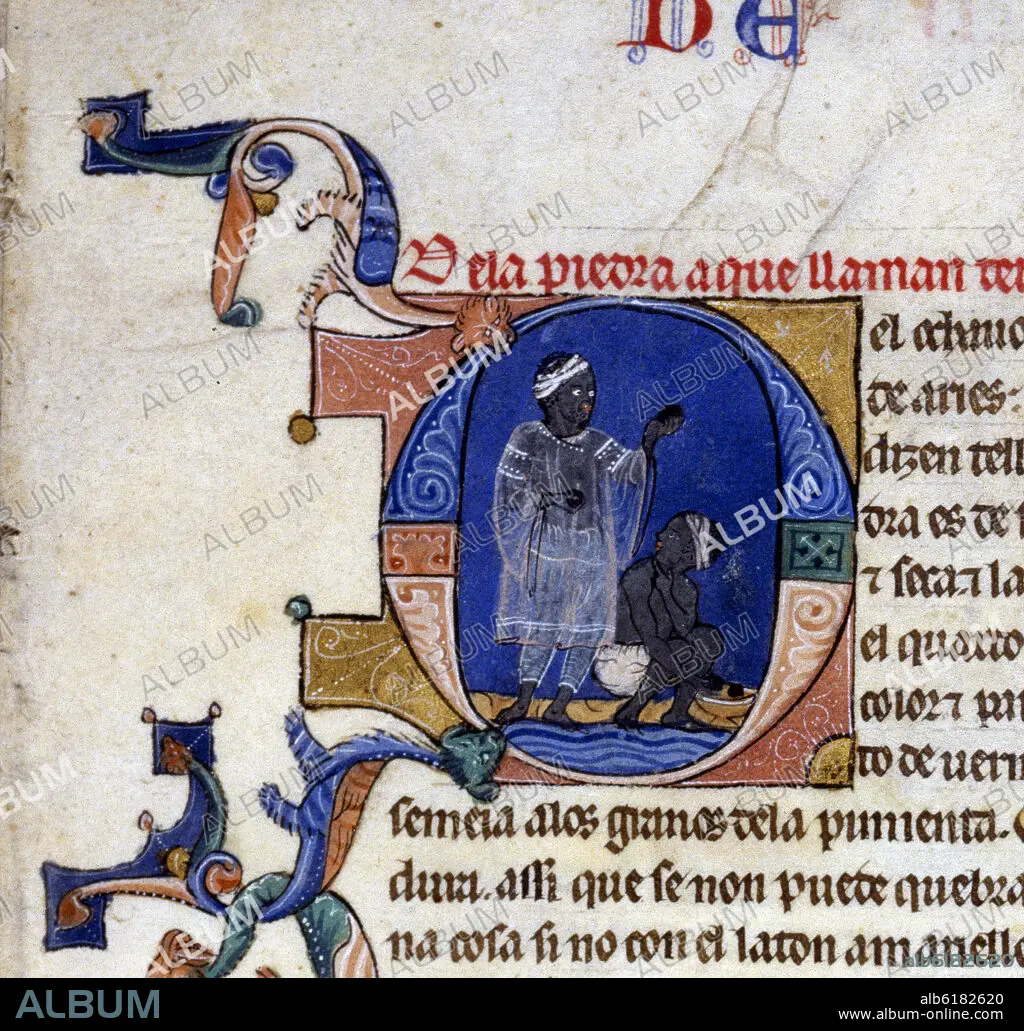 DE
Dela piedra aque llaman tel
el ochauo
de aries.
dizen tell
dra es de
⁊ seca ⁊ la
el quarto
color ⁊
to de uerm
semeia alos granos dela pimienta.
dura. assi que se non puede quebra
na cosa si no con el laton amariello
ALBUM
ab6182620
alb6182620
www.album-online.com